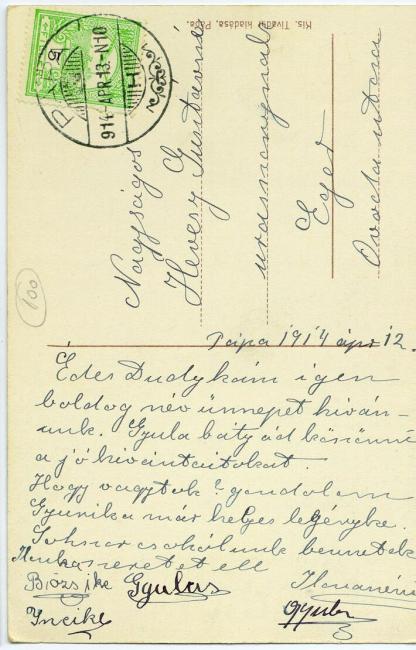 Kis. Tivadar kiadása, Pápa.
914 APR. 13. N 10
Nagyságos
G Hevesy Gusztávné
urasszonynak
Eger
Ovocta utcza
100
Pápa 1914 ápr 12.
Édes Dudykám igen
boldog név ünnepet kiván-
unk. Gyula bátyád köszöni
a jó kivántaitokat.
Hogy vagytok? gondolom
Gyunika már helyes legényke.
Sokszor csokolunk benneteket
szeretettel
Bözsike Gyulus Ilonanéni
Incike Gyula